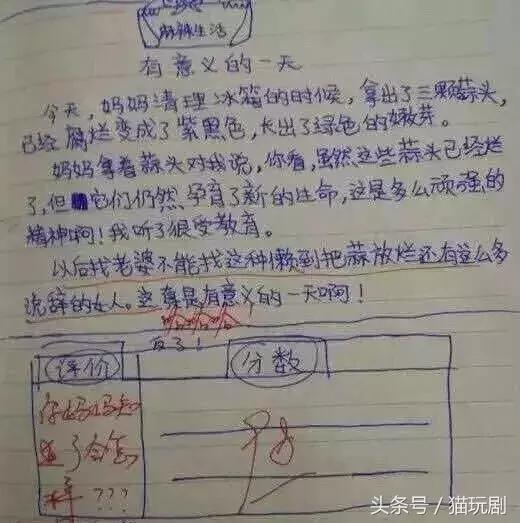 麻辣生活
有意义的一天
今天，妈妈清理冰箱的时候，拿出了三颗蒜头，
已经腐烂变成了紫黑色，长出了绿色的嫩芽。
妈妈拿着蒜头对我说，你看，虽然这些蒜头已经烂
了，但它们仍然孕育了新的生命，这是多么顽强的
精神啊！我听了很受教育。
以后找老婆不能找这种懒到把蒜放烂还有这么多
说辞的女人。这真是有意义的一天啊！
哈哈哈
反了！
评价
分数
你妈妈知
道了会怎
样？？？
头条号／猫玩剧